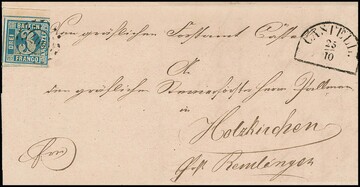 BAYERN
DREI
FRANCO
CASTELL
25
10
Vom gräflichen Forstamt Castell
An
den gräflichen Herrn Zöllner
in
Holzkirchen
Post Remlingen